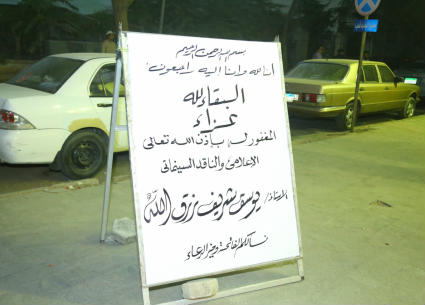 بسم الله الرحمن الرحيم
انا لله وانا إليه راجعون
البقاء لله
عزاء
المغفور له بإذن الله تعالى
الإعلامى والناقد السينمائى
الأستاذ/ يوسف شريف رزق الله
نسألكم الفاتحة وخير الدعاء